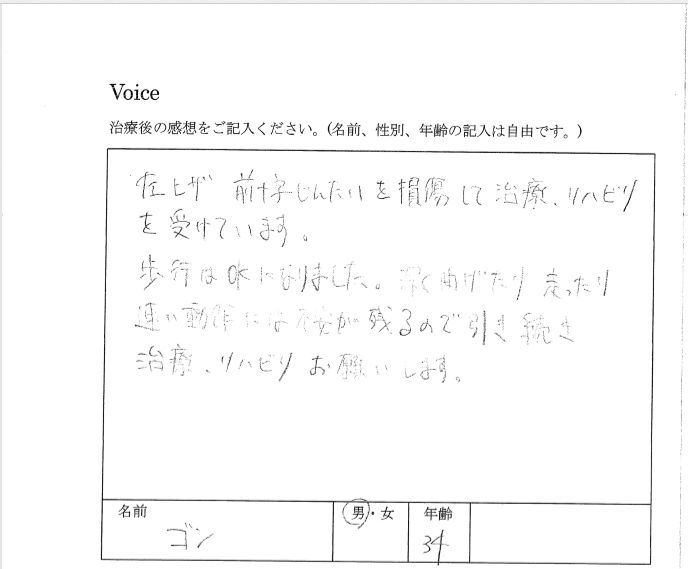 Voice
治療後の感想をご記入ください。(名前、性別、年齢の記入は自由です。)
左ヒザ 前十字じんたいを損傷して治療、リハビリ
を受けています。
歩行はOKになりました。深く曲げたり 走ったり
速い動作には不安が残るので引き続き
治療、リハビリお願いします。
名前 男・女 年齢
ゴン 34